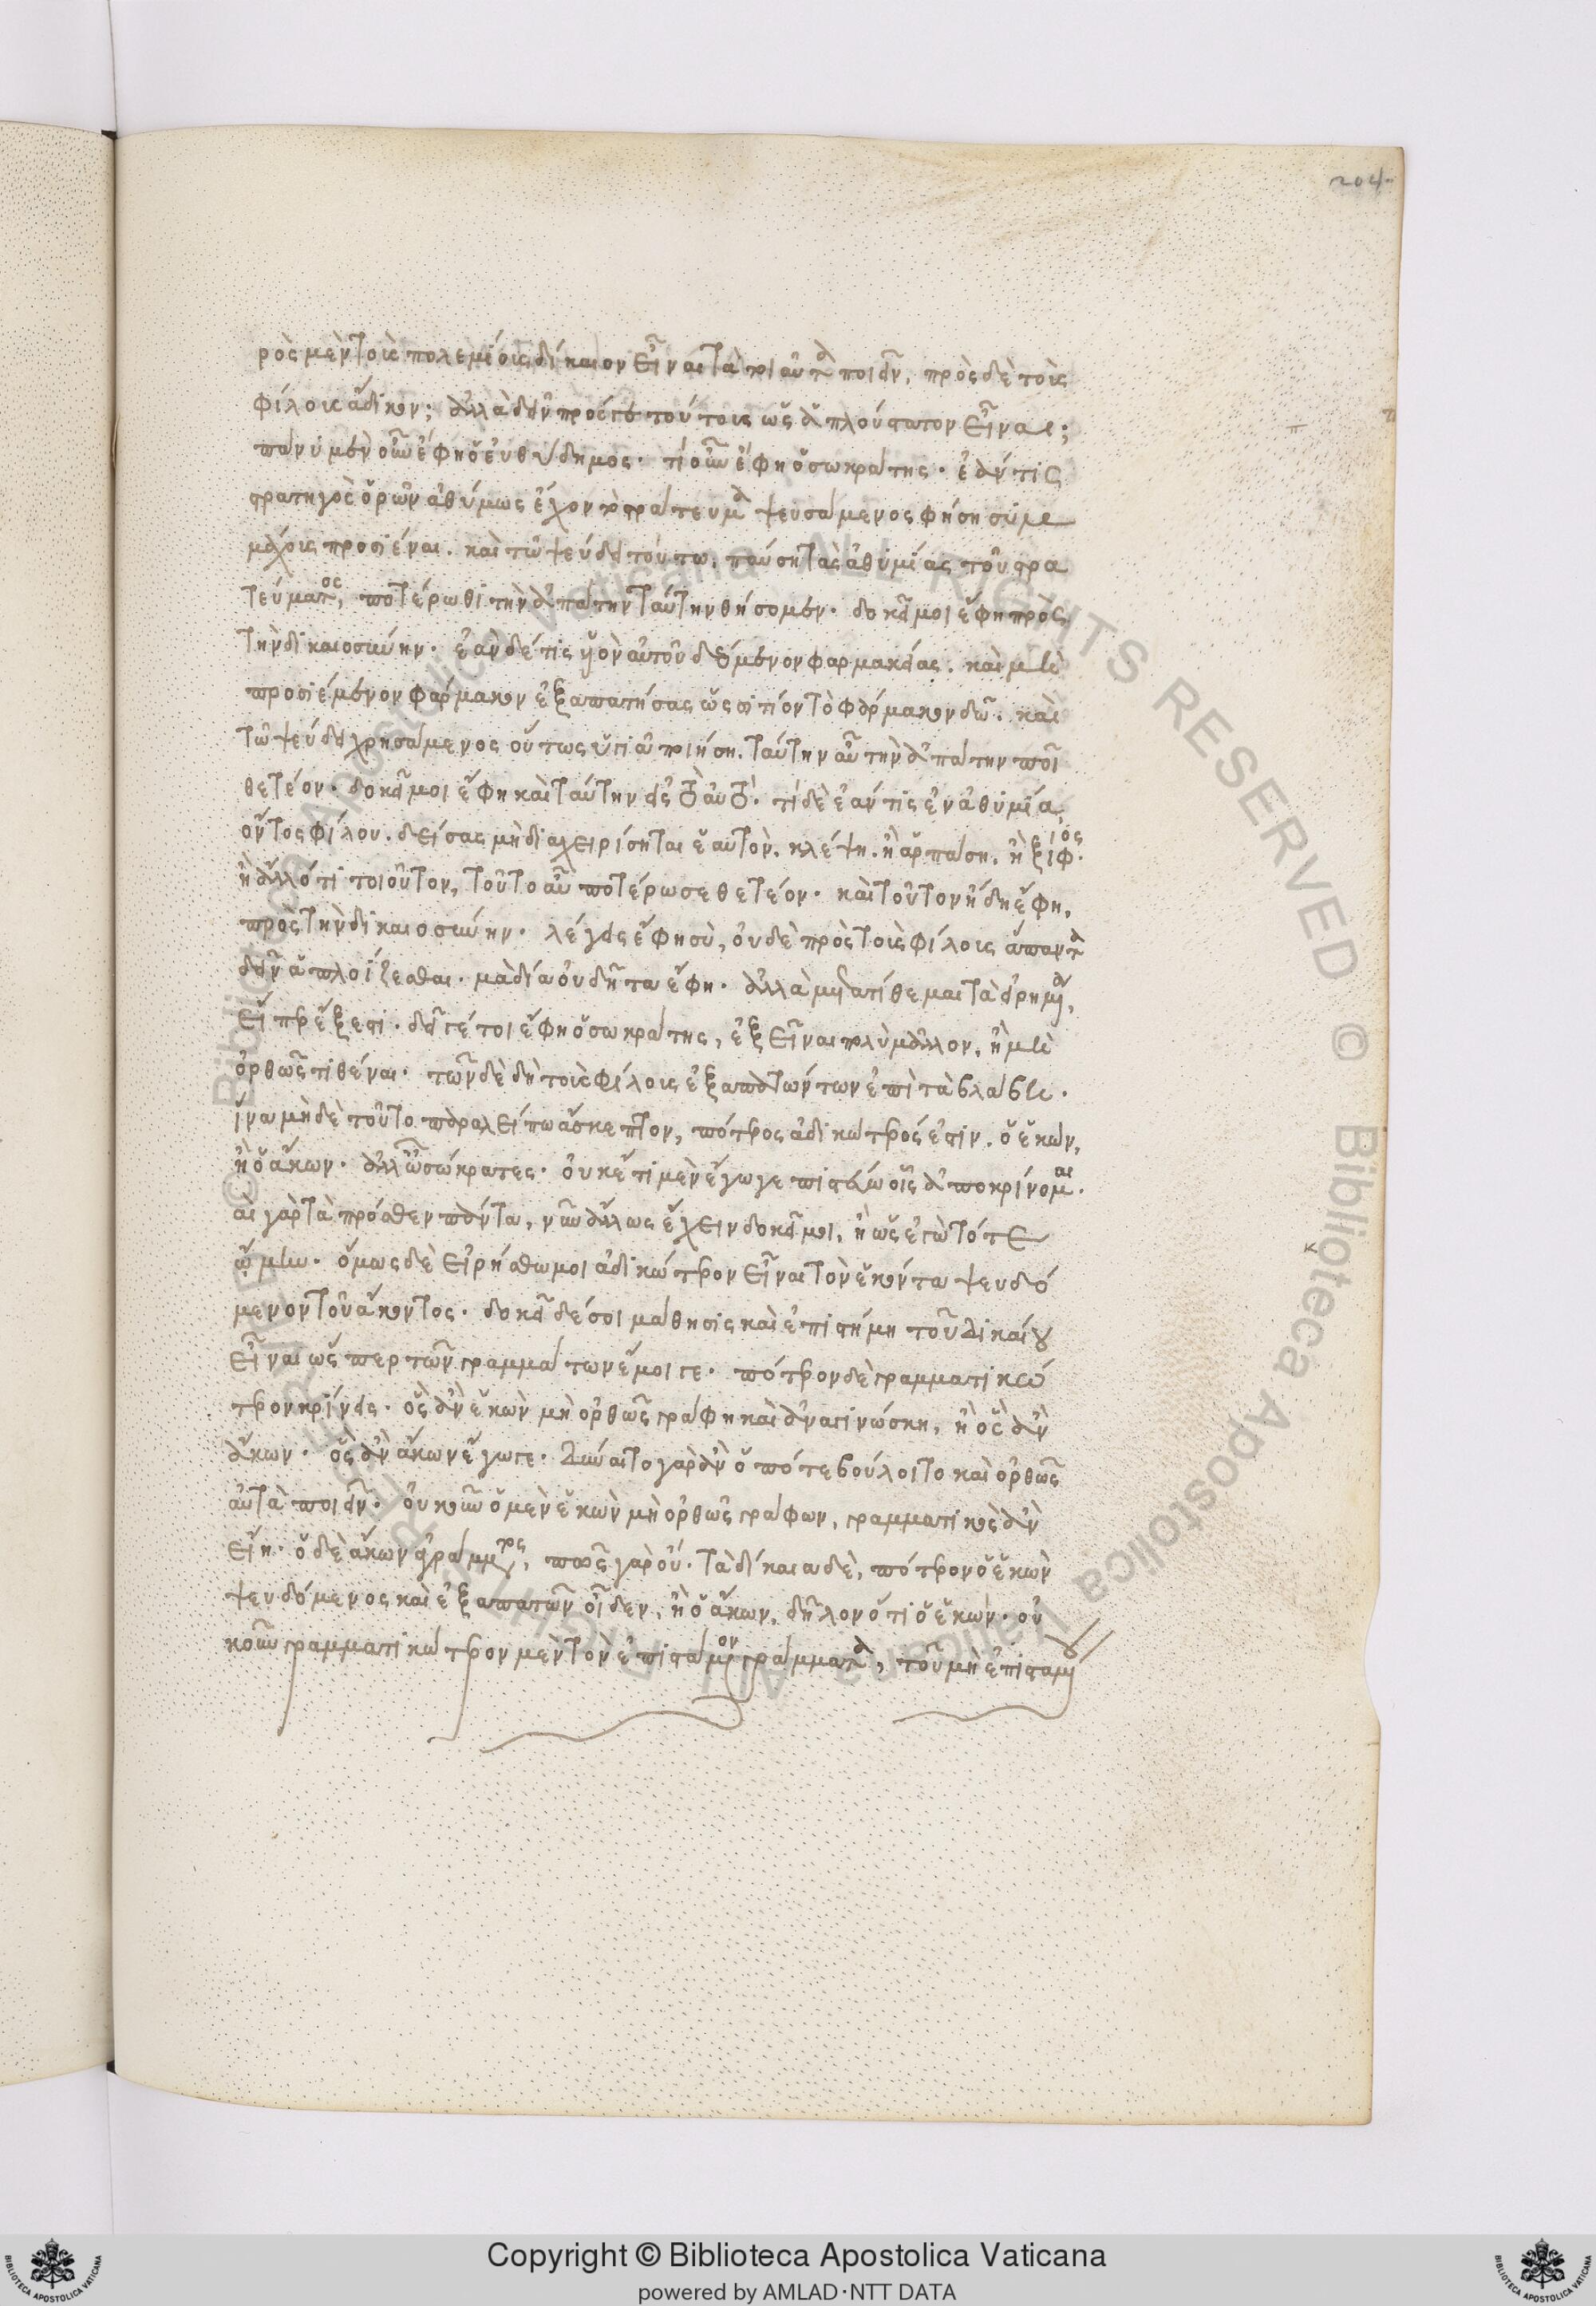 204
ρὸς μὲν τοὺς πολεμίους δίκαιον εἶναι τὰ τοιαῦτα ποιεῖν, πρὸς δὲ τοὺς
φίλους ἄδικον; ἀλλὰ δεῖν πρός γε τούτους ὡς ἁπλούστατον εἶναι;
πάνυ μὲν οὖν ἔφη ὁ εὐθύδημος. τί οὖν ἔφη ὁ σωκράτης. ἐάν τις
στρατηγὸς ὁρῶν ἀθύμως ἔχον τὸ στράτευμα ψευσάμενος φήση συμ
μάχους προσιέναι. καὶ τῶ ψεύδει τούτω, παύση τὰς ἀθυμίας τοῦ στρα
τεύματος, ποτέρωθι τὴν ἀπάτην ταύτην θήσομεν. δοκεῖ μοι ἔφη πρὸς
τὴν δικαιοσύνην. ἐὰν δέ τις υἱὸν αὐτοῦ δεόμενον φαρμακείας. καὶ μὴ
προσιέμενον φάρμακον ἐξαπατήσας ὡς σιτίον τὸ φάρμακον δῶ. καὶ
τῶ ψεύδει χρησάμενος οὕτως ὑγιᾶ ποιήση. ταύτην αὖ τὴν ἀπάτην ποῖ
θετέον. δοκεῖ μοι ἔφη καὶ ταύτην εἰς τὸ αὐτό. τί δὲ ἐάν τις ἐν ἀθυμία
ὄντος φίλου. δείσας μὴ διαχειρίσηται ἑαυτὸν. κλέψη. ἢ ἁρπάση. ἢ ξίφος.
ἢ ἄλλό τι τοιοῦτον, τοῦτο αὖ ποτέρωσε θετέον. καὶ τοῦτον ἤδη ἔφη.
πρὸς τὴν δικαιοσύνην. λέγεις ἔφη σὺ, οὐδὲ πρὸς τοὺς φίλους ἅπαντα
δεῖν ἁπλοίζεσθαι. μὰ δία οὐ δῆτα ἔφη. ἀλλὰ μετατίθεμαι τὰ εἰρημένα,
εἴπερ ἔξεστι. δεῖ γέ τοι ἔφη ὁ σωκράτης, ἐξεῖναι πολὺ μᾶλλον, ἢ μὴ
ὀρθῶς τιθέναι. τῶν δὲ δὴ τοὺς φίλους ἐξαπατώντων ἐπὶ τὰ βλάβη.
ἵνα μὴ δὲ τοῦτο παραλείπω ἄσκεπτον, πότερος ἀδικώτερός ἐστιν. ὁ ἑκὼν,
ἢ ὁ ἄκων. ἀλλ' ὦ σώκρατες. οὐκέτι μὲν ἔγωγε πιστεύω οἷς ἀποκρίνομαι.
αἱ γὰρ τὰ πρόσθεν πάντα, νῦν ἄλλως ἔχειν δοκεῖ μοι, ἢ ὡς ἐγὼ τότε
ᾤμην. ὅμως δὲ εἰρήσθω μοι ἀδικώτερον εἶναι τὸν ἑκόντα ψευδό
μενον τοῦ ἄκοντος. δοκεῖ δέ σοι μάθησις καὶ ἐπιστήμη τοῦ δικαίου
εἶναι ὥσπερ τῶν γραμμάτων ἔμοιγε. πότερον δὲ γραμματικώ
τερον κρίνεις. ὃς ἂν ἑκὼν μὴ ὀρθῶς γράφη καὶ ἀναγινώσκη, ἢ ὃς ἂν
ἄκων. ὃς ἂν ἄκων ἔγωγε. δύναιτο γὰρ ἂν ὁπότε βούλοιτο καὶ ὀρθῶς
αὐτὰ ποιεῖν. οὐκοῦν ὁ μὲν ἑκὼν μὴ ὀρθῶς γράφων, γραμματικὸς ἂν
εἴη. ὁ δὲ ἄκων ἀγράμματος, πῶς γὰρ οὔ. τὰ δίκαια δὲ, πότερον ὁ ἑκὼν
ψευδόμενος καὶ ἐξαπατῶν οἶδεν, ἢ ὁ ἄκων, δῆλον ὅτι ὁ ἑκών. οὐ
κοῦν γραμματικώτερον μὲν τὸν ἐπιστάμενον γράμματα, τοῦ μὴ ἐπισταμένου
© Biblioteca Apostolica Vaticana ALL RIGHTS RESERVED
Copyright © Biblioteca Apostolica Vaticana
powered by AMLAD·NTT DATA